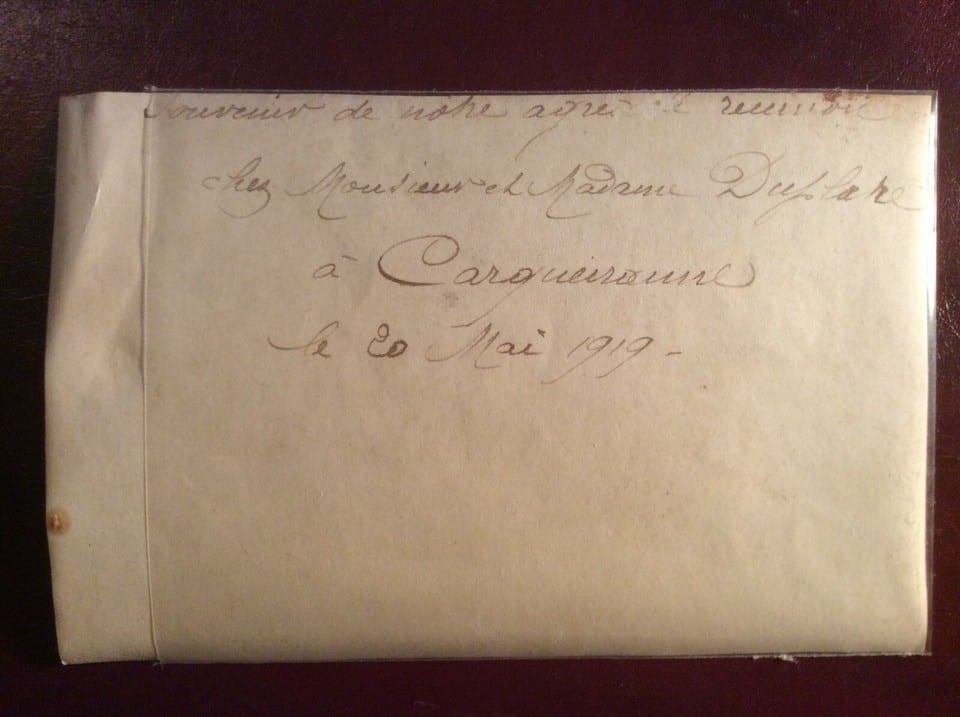 Souvenir de notre réunion
chez Monsieur et Madame
à Carqueiranne
le 20 Mai 1919 -